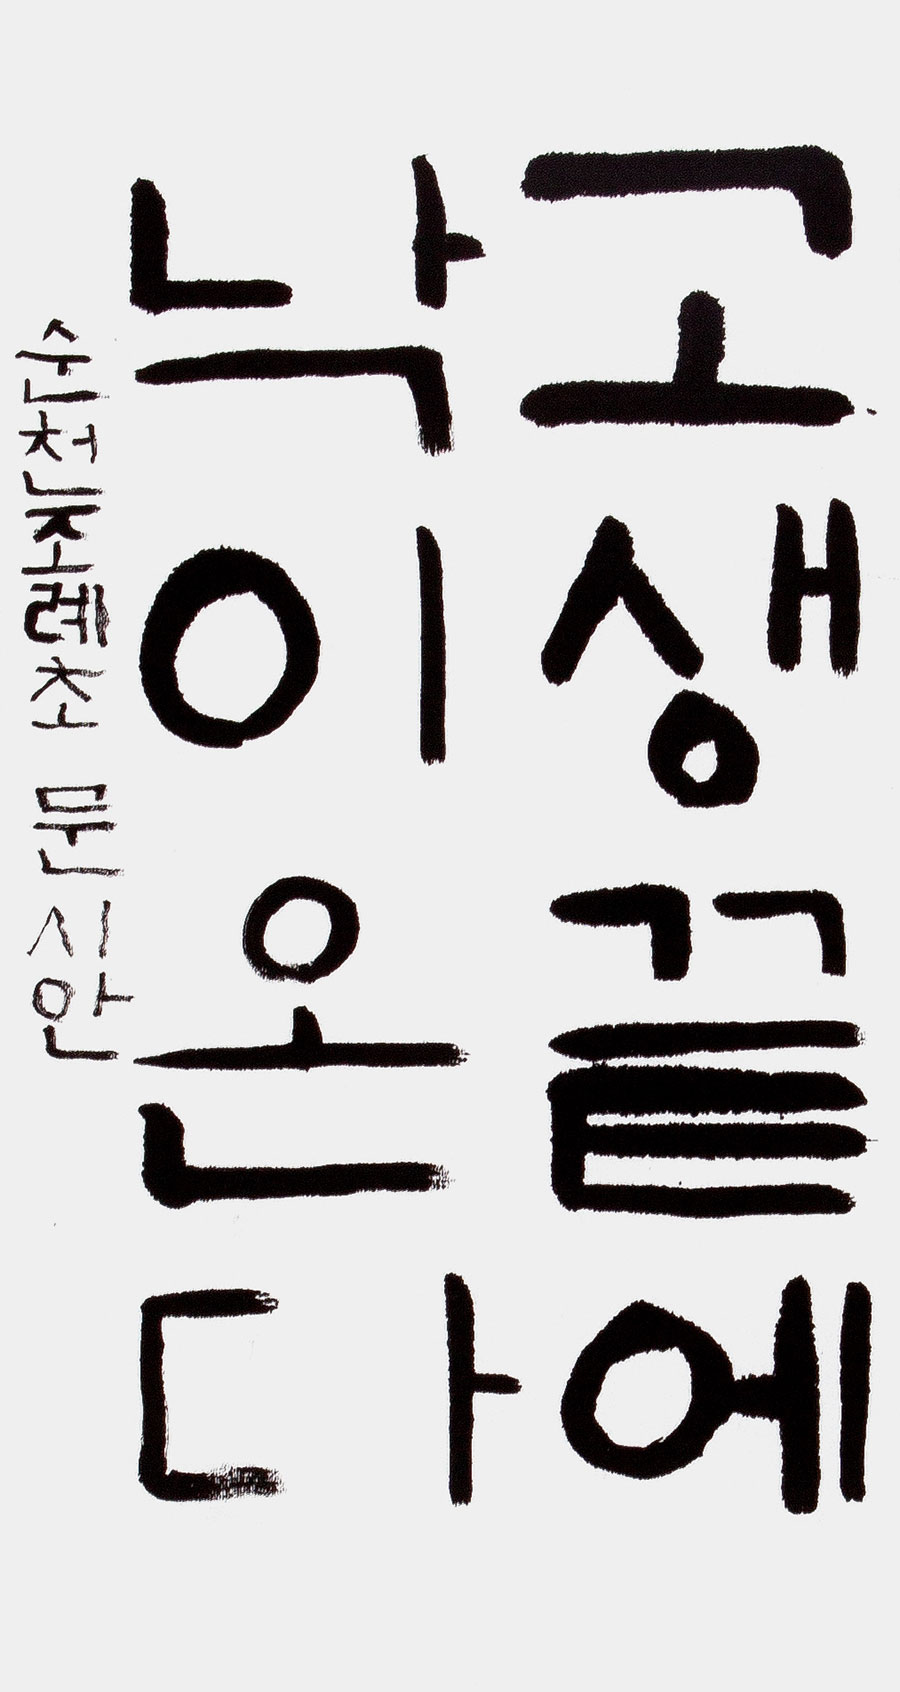 고생끝에
낙이온다
순천조례초 문시안